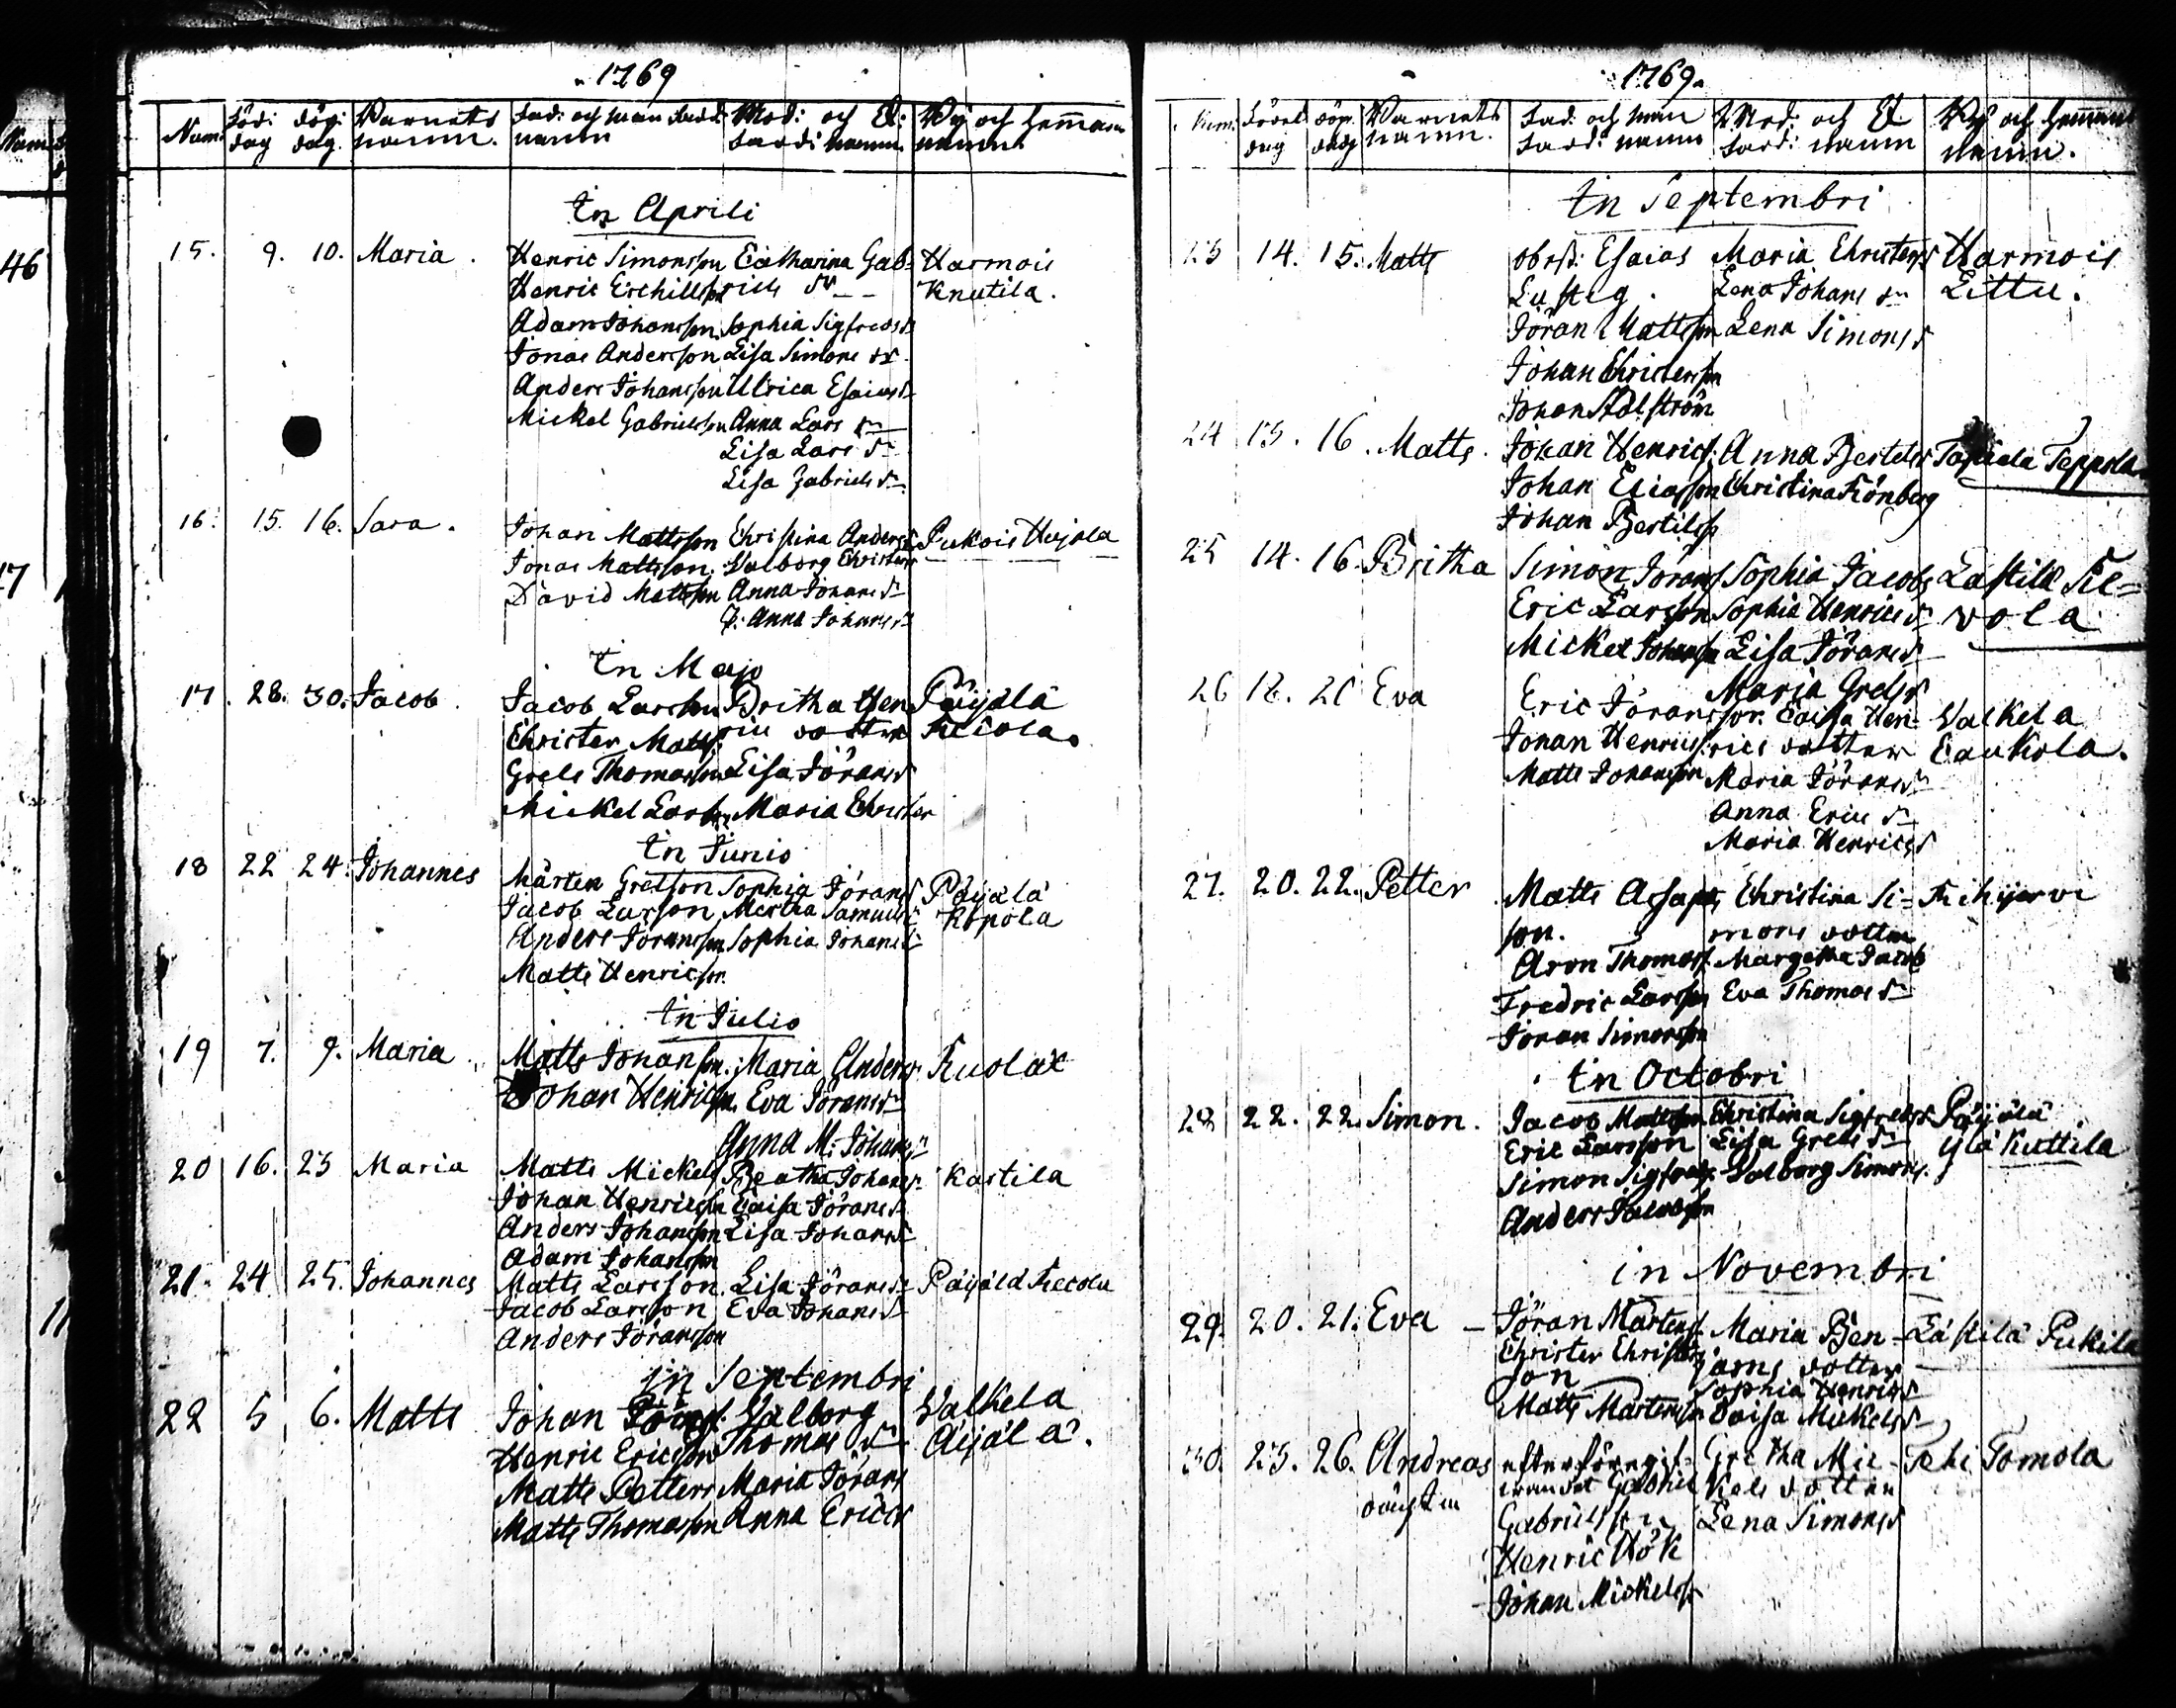 1769
Num: född: döp: Barnets fad: och man fadd: Mod: och Q: By och Hemmans
dag dag. namn. namn fardi namn. namn
In Aprili
15. 9. 10. Maria. Henric Simonsson Catharina Gab= Harmois
Henric Erchillsson riels dr Knutila.
Adam Johansson Sophia Sigfreds dr
Jonas Andersson Lisa Simons dr
Anders Johansson Ulrica Esaiæ dr
Mickel Gabrielsson Anna Lars dr
Lisa Lars dr
Lisa Gabriels dr
16. 15. 16. Sara. Johan Mattsson Christina Anders d Pukois Heijola
Jonas Mattsson. Valborg Christers
David Mattsson Anna Johans dr
P: Anna Johans dr
In Majo
17. 28. 30. Jacob. Jacob Larsson Britha Hen Päijälä
Christer Matts: rics dotter
Grels Thomasson Lisa Jörans d
Mickel Larsson Maria Christer
In Junio
18 22 24. Johannes Mårten Grelsson Sophia Jörans d Päijälä
Jacob Larsson Mertha Samuels dr Kopola
Anders Joransson Sophia Johans dr
Matts Henricsson
In Julio
19 7. 9. Maria. Matts Johansson. Maria Anders
Johan Henricsson Eva Jörans dr
Anna M: Johans dr
20 16. 23 Maria Matts Mickels Beatha Johans dr Kartila
Johan Henricsson Caisa Jörans dr
Anders Johansson Lisa Johans dr
Adam Johansson
21. 24. 25. Johannes Matts Larsson. Lisa Jörans dr Päijälä
Jacob Larsson Eva Johans dr
Anders Jöransson
in Septembri
22 5 6. Matts Johan Valborg Valkela
Henric Ericsson Thomas dr Äijälä.
Matts Petters Maria Jörans
Matts Thomasson Anna Erics
1769.
Num: Födel döp. Barnets fad: och man Mod: och Q. By och Hemmans
dag dag namn. fard: namn fard: namn namn.
In Septembri
23 14. 15. Matts Esaias Maria Christers Harmois
Lustig. Lena Johans dr Littu.
Jöran Mattsson Lena Simons d
Johan Christersson
Johan Stålström
24 13. 16. Matts. Johan Henrics: Anna Bertels Teppola
Johan Eliasson Christina Könberg
Johan Bertilss
25 14. 16. Britha Simon Jorans Sophia Jacobs Lastila
Eric Larsson Sophia Henrics d vola
Mickel Johansson Lisa Jörans d
Maria Grels d
26 18. 20 Eva Eric Jöransson. Caisa Hen- Valkela
Johan Henrics rics dotter Caukola.
Matts Johansson Maria Jörans dr
Anna Erics dr
Maria Henrics d
27. 20. 22. Petter Matts Christina Si=
son. mons dotter
Aron Thomass. Margetha Jacob
Fredric Larsson Eva Thomas dr
Joran Simonsson
In Octobri
28 22. 22. Simon. Jacob Mattsson Christina Sigfreds d Päijälä
Eric Larsson Lisa Grels dr Ylä Kuttila
Simon Sigfreds Valborg Simons.
Anders Jacobsson
in Novembri
29. 20. 21. Eva Jöran Mårtens Maria Ben- Lästilä Pukila
Christer Christers jams dotter
son Sophia Henrics d
Matts Mårtensson Caisa Mickels d
30. 23. 26. Andreas Gretha Mic- Tomola
Gabriel kels dotter
Gabrielsson Lena Simons d
Henric Hök
Johan Mickelss
46